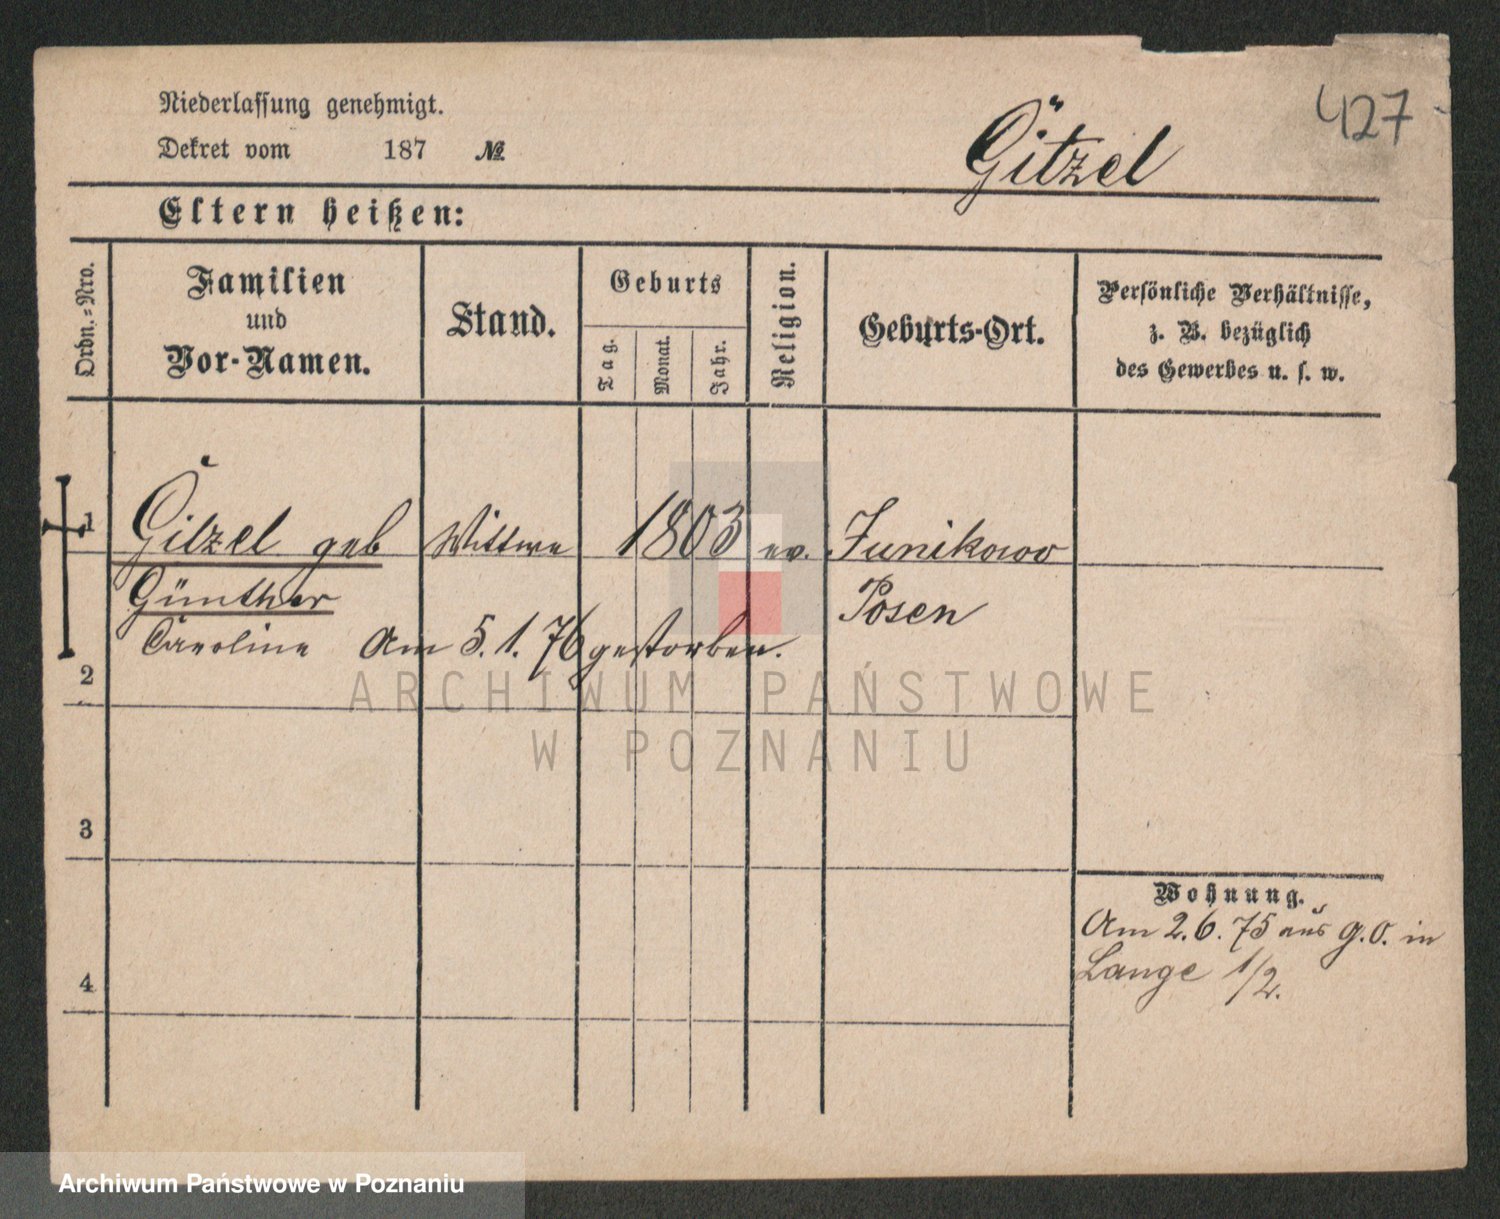 427
Niederlassung genehmigt.
Dekret vom 187 №
Gitzel
Eltern heißen:
Ordn.-Nro.
Familien
und
Vor-Namen.
Stand.
Geburts
Tag.
Monat.
Jahr.
Religion.
Geburts-Ort.
Persönliche Verhältnisse,
z. B. bezüglich
des Gewerbes u. s. w.
1 Gitzel geb Wittwe 1803 ev. Junikowo
Günther Posen
Caroline Am 5.1.76 gestorben.
2
ARCHIWUM PAŃSTWOWE
W POZNANIU
3
Wohnung.
Am 2.6.75 aus G.O. in
Lange 1/2.
4
Archiwum Państwowe w Poznaniu